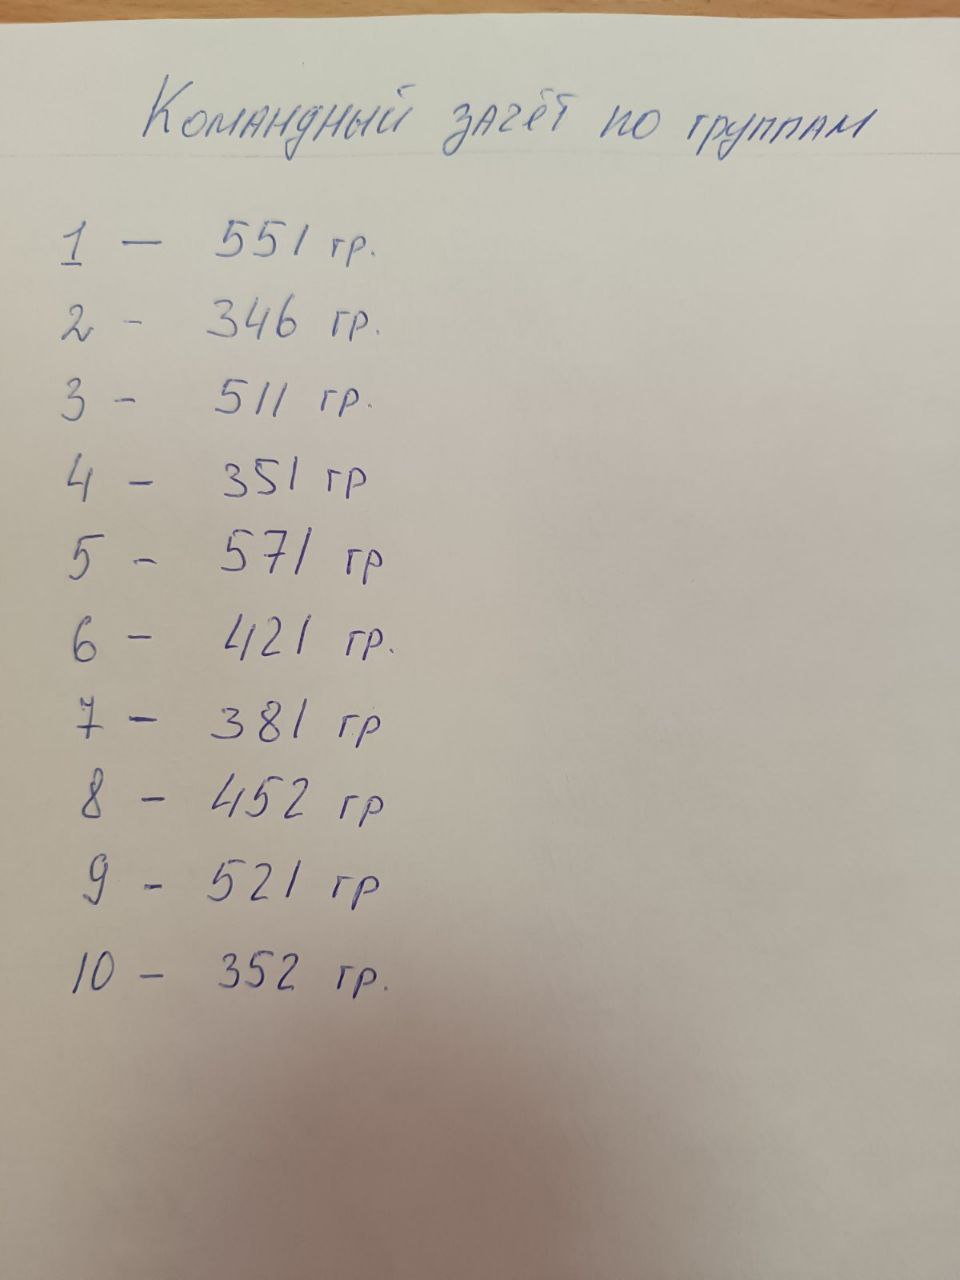 Командный зачёт по группам
1 — 551 гр.
2 - 346 гр.
3 - 511 гр.
4 - 351 гр
5 - 571 гр
6 - 421 гр.
7 - 381 гр
8 - 452 гр
9 - 521 гр
10 - 352 гр.